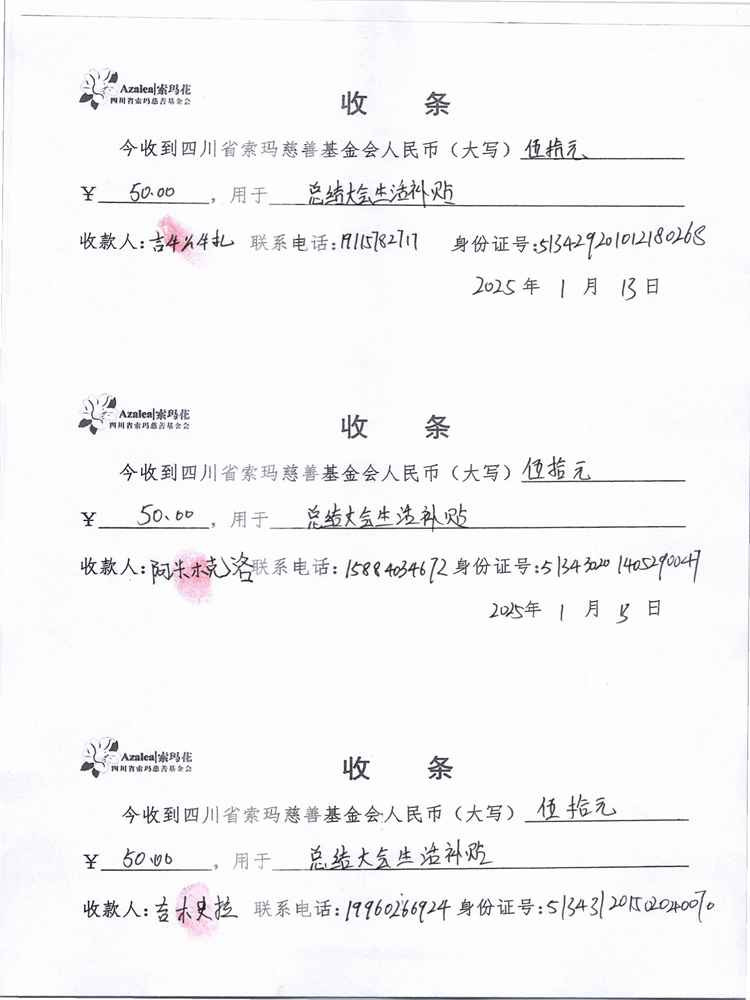 Azalea|索玛花
四川省索玛慈善基金会
收 条
今收到四川省索玛慈善基金会人民币（大写）伍拾元
¥ 50.00 ，用于 总结大会生活补贴
收款人:吉牛公牛扎 联系电话:19115782717 身份证号:513429201012180268
2025年 1 月 13 日
Azalea|索玛花
四川省索玛慈善基金会
收 条
今收到四川省索玛慈善基金会人民币（大写）伍拾元
¥ 50.00 ，用于 总结大会生活补贴
收款人:阿米木克洛 联系电话:15884034672 身份证号:513430201405290047
2025年 1 月 13 日
Azalea|索玛花
四川省索玛慈善基金会
收 条
今收到四川省索玛慈善基金会人民币（大写）伍拾元
¥ 50.00 ，用于 总结大会生活补贴
收款人:吉木史拉 联系电话:19960266924 身份证号:513431201502040070